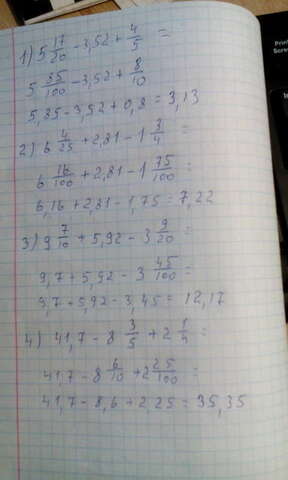 1) 5 17/20 - 3,52 + 4/5 =
5 85/100 - 3,52 + 8/10
5,85 - 3,52 + 0,8 = 3,13
2) 6 4/25 + 2,81 - 1 3/4 =
6 16/100 + 2,81 - 1 75/100 =
6,16 + 2,81 - 1,75 = 7,22
3) 9 7/10 + 5,92 - 3 9/20 =
9,7 + 5,92 - 3 45/100 =
9,7 + 5,92 - 3,45 = 12,17
4) 41,7 - 8 3/5 + 2 1/4 =
41,7 - 8 6/10 + 2 25/100 =
41,7 - 8,6 + 2,25 = 35,35